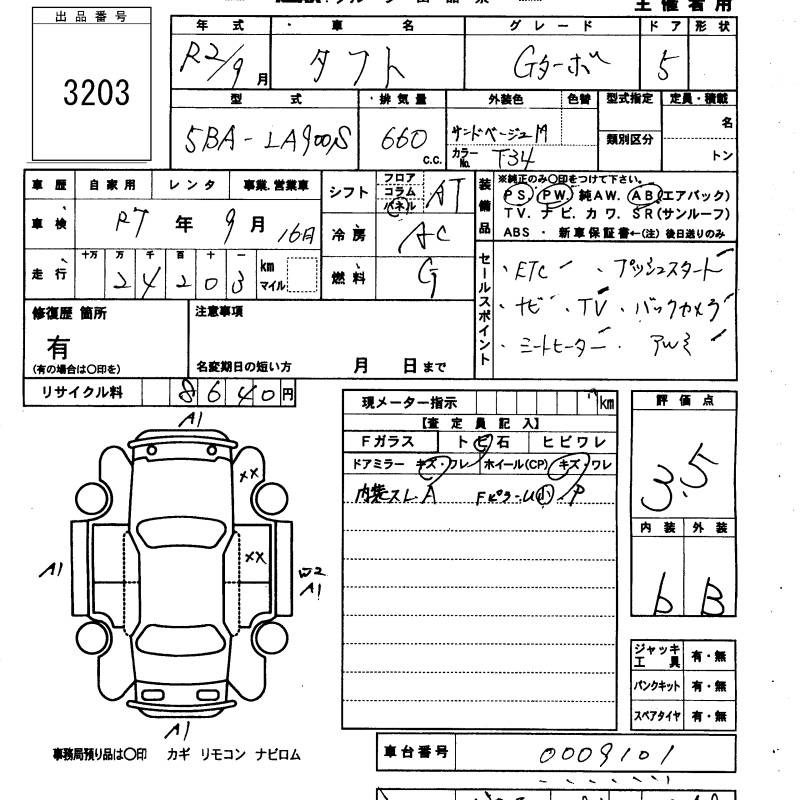 主催者用
出品番号
3203
年式 車名 グレード ドア 形状
R2/9月 タフト Gターボ 5
型式 ・排気量 外装色 色替 型式指定 定員・積載
5BA-LA900S 660 c.c. サンドベージュM カラーNo. T34 類別区分 名 トン
車歴 自家用 レンタ 事業.営業車
車検 R7年9月16日
走行 十万 万 千 百 十 一
24203 km マイル
シフト フロア コラム パネル AT
冷房 AC
燃料 G
装備品
※純正のみ〇印をつけて下さい。
PS. PW. 純AW. AB.(エアバック)
TV. ナビ. カワ. SR(サンルーフ)
ABS ・ 新車保証書←(注) 後日送りのみ
セールスポイント
・ETC ・プッシュスタート
・ナビ ・TV ・バックカメラ
・シートヒーター ・アルミ
修復歴 箇所
有
(有の場合は〇印を)
注意事項
名変期日の短い方 月 日まで
リサイクル料 8640円
現メーター指示 km
【査定員記入】
Fガラス トビ石 ヒビワレ
ドアミラー キズ・ワレ ホイール(CP) キズ・ワレ
内装スレ.A Fピラーu小/P
評価点
3.5
内装 外装
b B
A1
XX
XX
A1
W2
A1
A1
ジャッキ工具 有・無
パンクキット 有・無
スペアタイヤ 有・無
事務局預り品は〇印 カギ リモコン ナビロム
車台番号 0009101